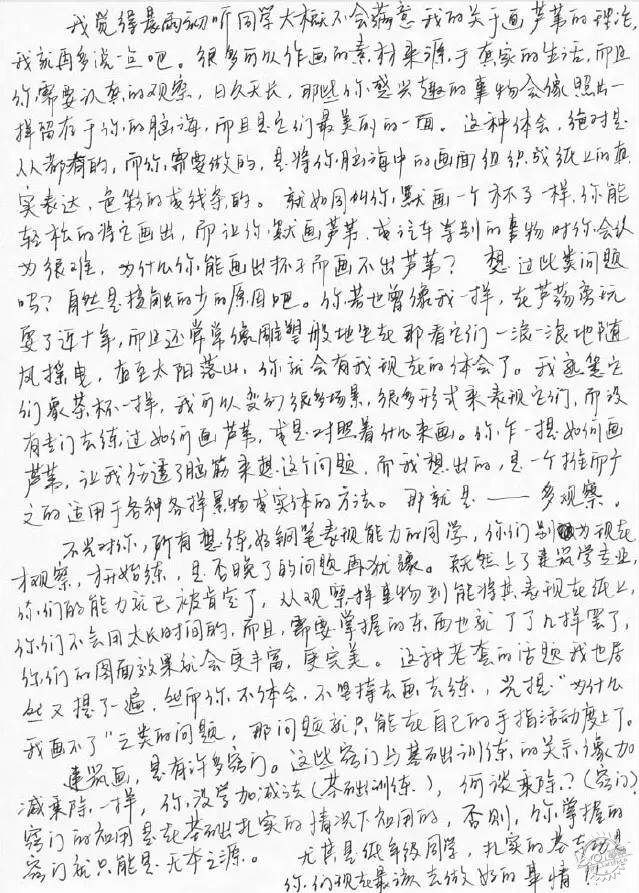 我觉得最两初听同学大概不会满意我的关于画芦苇的理论,
我就再多说一点吧。很多可以作画的素材来源于真实的生活,而且
你需要认真的观察,日久天长,那些你感兴趣的事物会像照片一
样留存于你的脑海,而且是它们最美丽的一面。这种体会,绝对是
人人都有的,而你需要做的,是将你脑海中的画面组织成纸上的真
实表达,色彩的或线条的。就如同叫你默画一个杯子一样,你能
轻松的将它画出,而让你默画芦苇,或汽车等别的事物时你会认
为很难,为什么你能画出杯子而画不出芦苇?想过此类问题
吗?自然是接触的少的原因吧。你若也曾像我一样,在芦荡旁玩
耍了近十年,而且还常常像雕塑般地坐在那看它们一浪一浪地随
风摇曳,直至太阳落山,你就会有我现在的体会了。我就其它
们象茶杯一样,我可以变幻很多场景,很多形式来表现它们,而没
有专门去练过如何画芦苇,或是对照着什么来画。你乍一想如何画
芦苇,让我伤透了脑筋来想这个问题,而我想出的,是一个推而广
之的适用于各种各样景物或实体的方法。那就是——多观察。
不光对你,所有想练好钢笔表现能力的同学,你们别为现在
才观察,才开始练,是否晚了的问题再犹豫。既然上了建筑学专业,
你们的能力就已被肯定了,从观察样事物到能将其表现在纸上,
你们不会用太长时间的,而且,需要掌握的东西也就了了几样罢了,
你们的图面效果就会更丰富,更完美。这种老套的话题我也居
然又提了一遍,然而你不体会,不坚持去画去练,光提“为什么
我画不了”之类的问题,那问题就只能在自己的手指活动度上了。
建筑画,是有许多窍门。这些窍门与基础训练的关系像加
减乘除一样,你没学加减法(基础训练),何谈乘除?(窍门)
窍门的袓用是在基础扎实的情况下袓用的,否则,你掌握的
窍门就只能是无本之源。 尤其是低年级同学,扎实的基本功是
你们现在最该去做好的事情